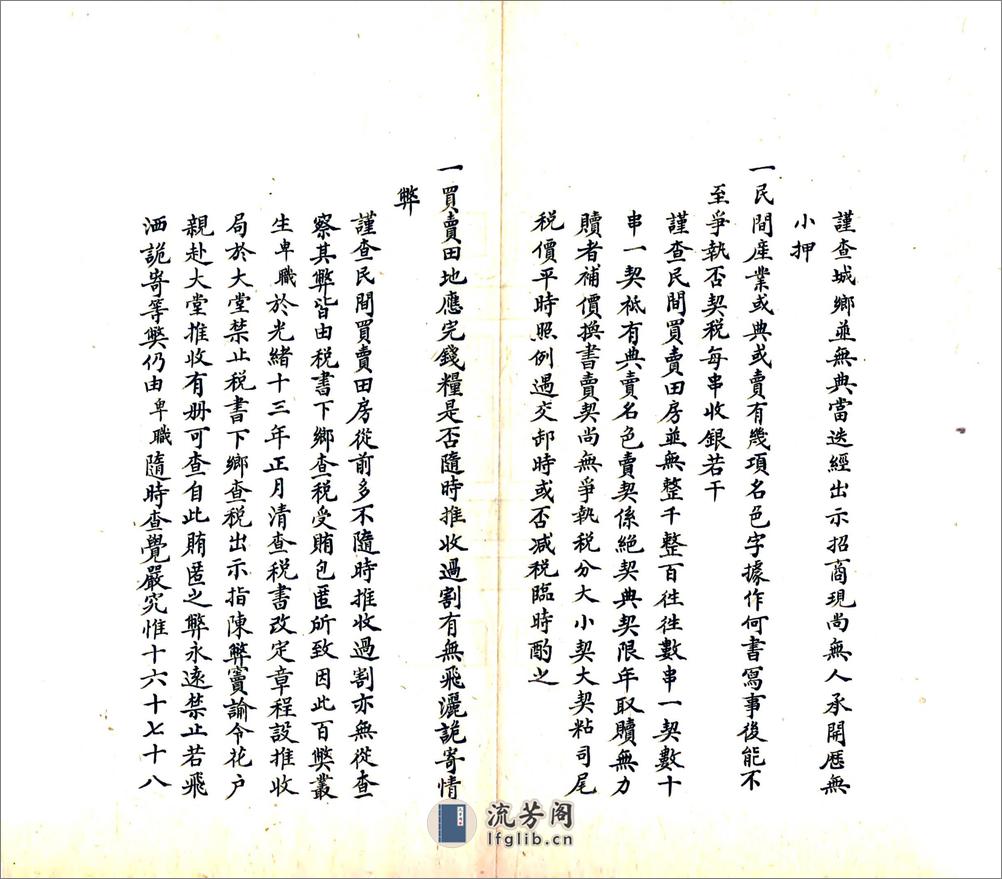 謹查城鄉並無典當迭經出示招商現尚無人承開歷無
小押
一民間產業或典或賣有幾項名色字據作何書寫事後能不
至爭執否契税每串收銀若干
謹查民間買賣田房並無整千整百徃徃數串一契數十
串一契祗有典賣名色賣契係絕契典契限年取贖無力
贖者補價換書賣契尚無爭執税分大小契大契粘司尾
税價平時照例遇交卸時或否减税臨時酌之
一買賣田地應完錢糧是否隨時推收過割有無飛灑詭寄情
弊
謹查民間買賣田房從前多不隨時推收過割亦無從查
察其弊皆由税書下鄉查税受賄包匿所致因此百弊叢
生卑職於光緒十三年正月清查税書改定章程設推收
局於大堂禁止税書下鄉查税出示指陳弊竇諭令花户
親赴大堂推收有册可查自此賄匿之弊永遠禁止若飛
洒詭寄等弊仍由卑職隨時查覺嚴究惟十六十七十八
流芳阁
lfglib.cn